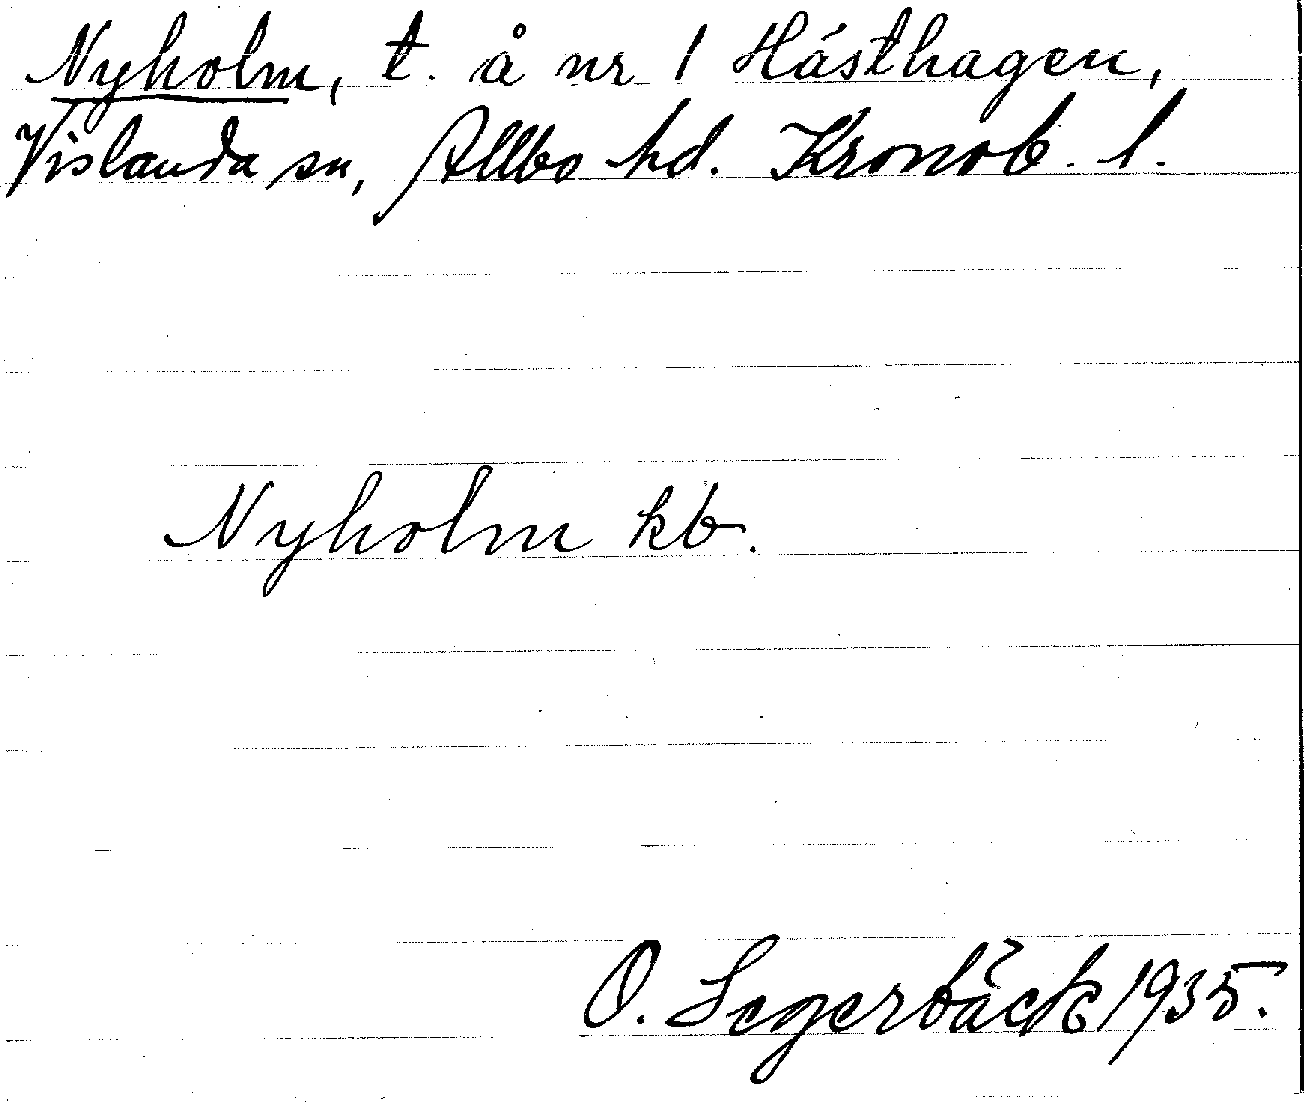 Nyholm, t. å nr 1 Hästhagen,
Vislanda sn, Allbo hd. Kronob. l.
Nyholm kb.
O. Segerbäck 1935.